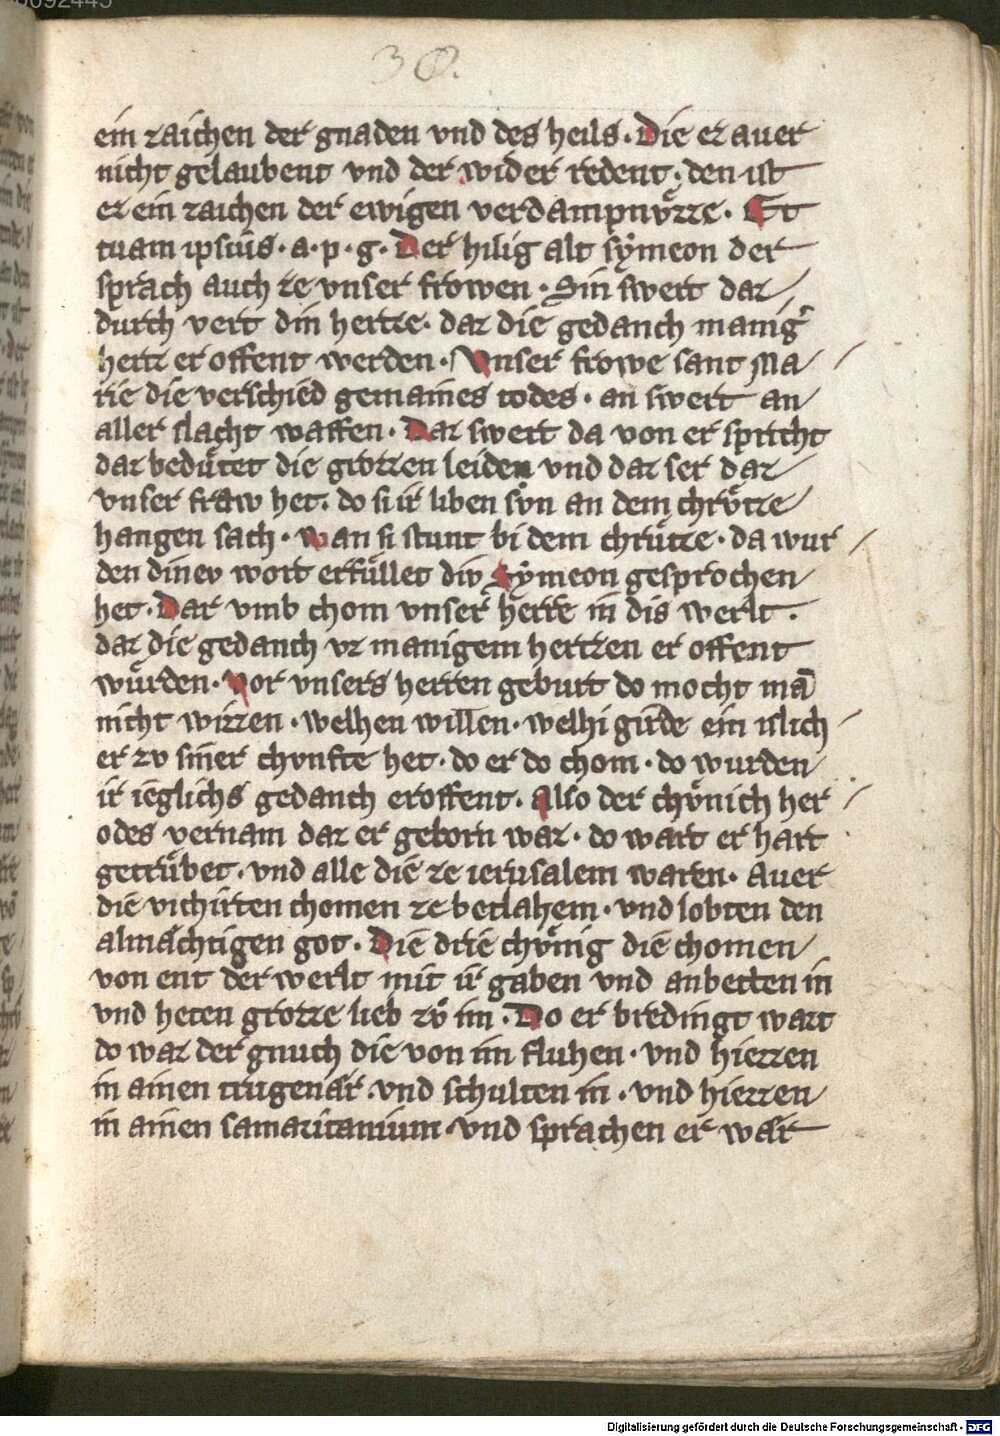 30.
ein zaichen der gnaden vnd des heils · Die ez auer
nicht gelaubent vnd der wider redent · den ist
ez ein zaichen der ewigen verdampnvͤzze · Et
tuam ipsius · a · p · g · Der hilig alt symeon der
sprach auch ze vnser frowen · Sin swert daz
durch vert din hertze · daz die gedanch manig̉
hertz er offent werden · Vnser frowe sant Ma
rie die verschied gemaines todes · an swert an
aller slacht waffen · Daz swert da von er spricht
daz bedůtet die grozzen leiden vnd daz ser daz
vnser fraw het · do si ir liben svn an dem chrvͤtze
hangen sach · wan si stunt bi dem chrůtze · da wur
den dinev wort erfůllet div Symeon gesprochen
het · Dar vmb chom vnser herre in dis werlt ·
daz die gedanch vz manigem hertzen er offent
wůrden · Vor vnsers herren geburt do mocht mā
nicht wizzen · welhen willen · welhi girde ein islich
er zv siner chvnfte het · do er do chom · do wurden
ir ieglichs gedanch eroffent · Also der chvͤnich her
odes vernam daz er geborn waz · do wart er hart
getrůbet · vnd alle die ze ierusalem waren · Auer
die vichirten chomen ze betlahem · vnd lobten den
almåchtigen got · Die drie chvͤnig die chomen
von ent der werlt mit ir gaben vnd anbetten in
vnd heten grozze lieb zvͦ im · Do er bredingt wart
do waz der gnuch die von im fluhen · vnd hiezzen
in ainen trugenår · vnd schulten in · vnd hiezzen
in ainen samaritanium · vnd sprachen er wår
Digitalisierung gefördert durch die Deutsche Forschungsgemeinschaft · DFG